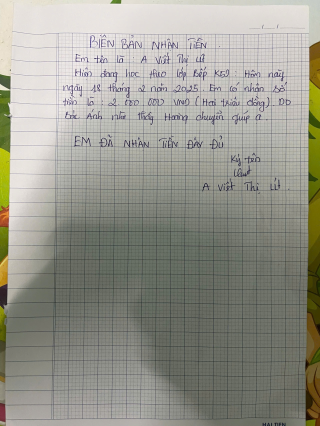 BIÊN BẢN NHẬN TIỀN
Em tên là : A Viết Thị Út
Hiện đang học theo lớp Bếp K59. Hôm nay
ngày 18 tháng 2 năm 2025. Em có nhận số
tiền là : 2.000.000 VND (Hai triệu đồng). DO
Bác Ánh nhờ thầy Hương chuyển giúp ạ.
EM ĐÃ NHẬN TIỀN ĐẦY ĐỦ
Ký tên
A Viết Thị Út.
HALDEN